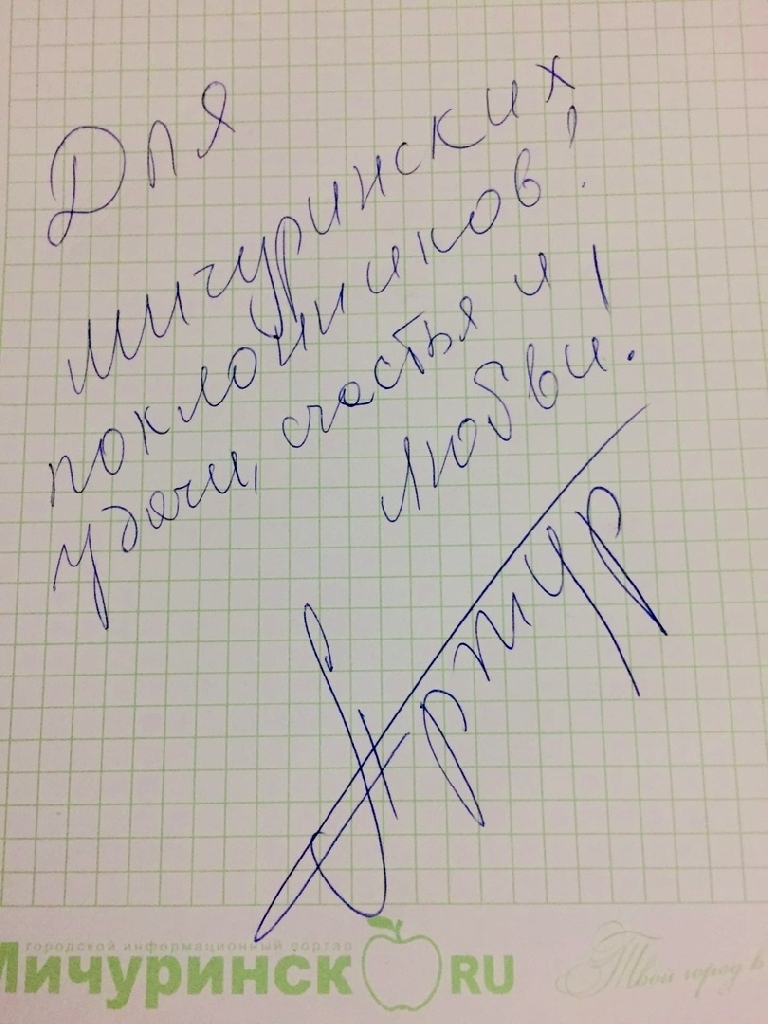 Для
мичуринских
поклонников!
удачи, счастья и
любви!
Артур
городской информационный портал
Мичуринск RU
Твой город в